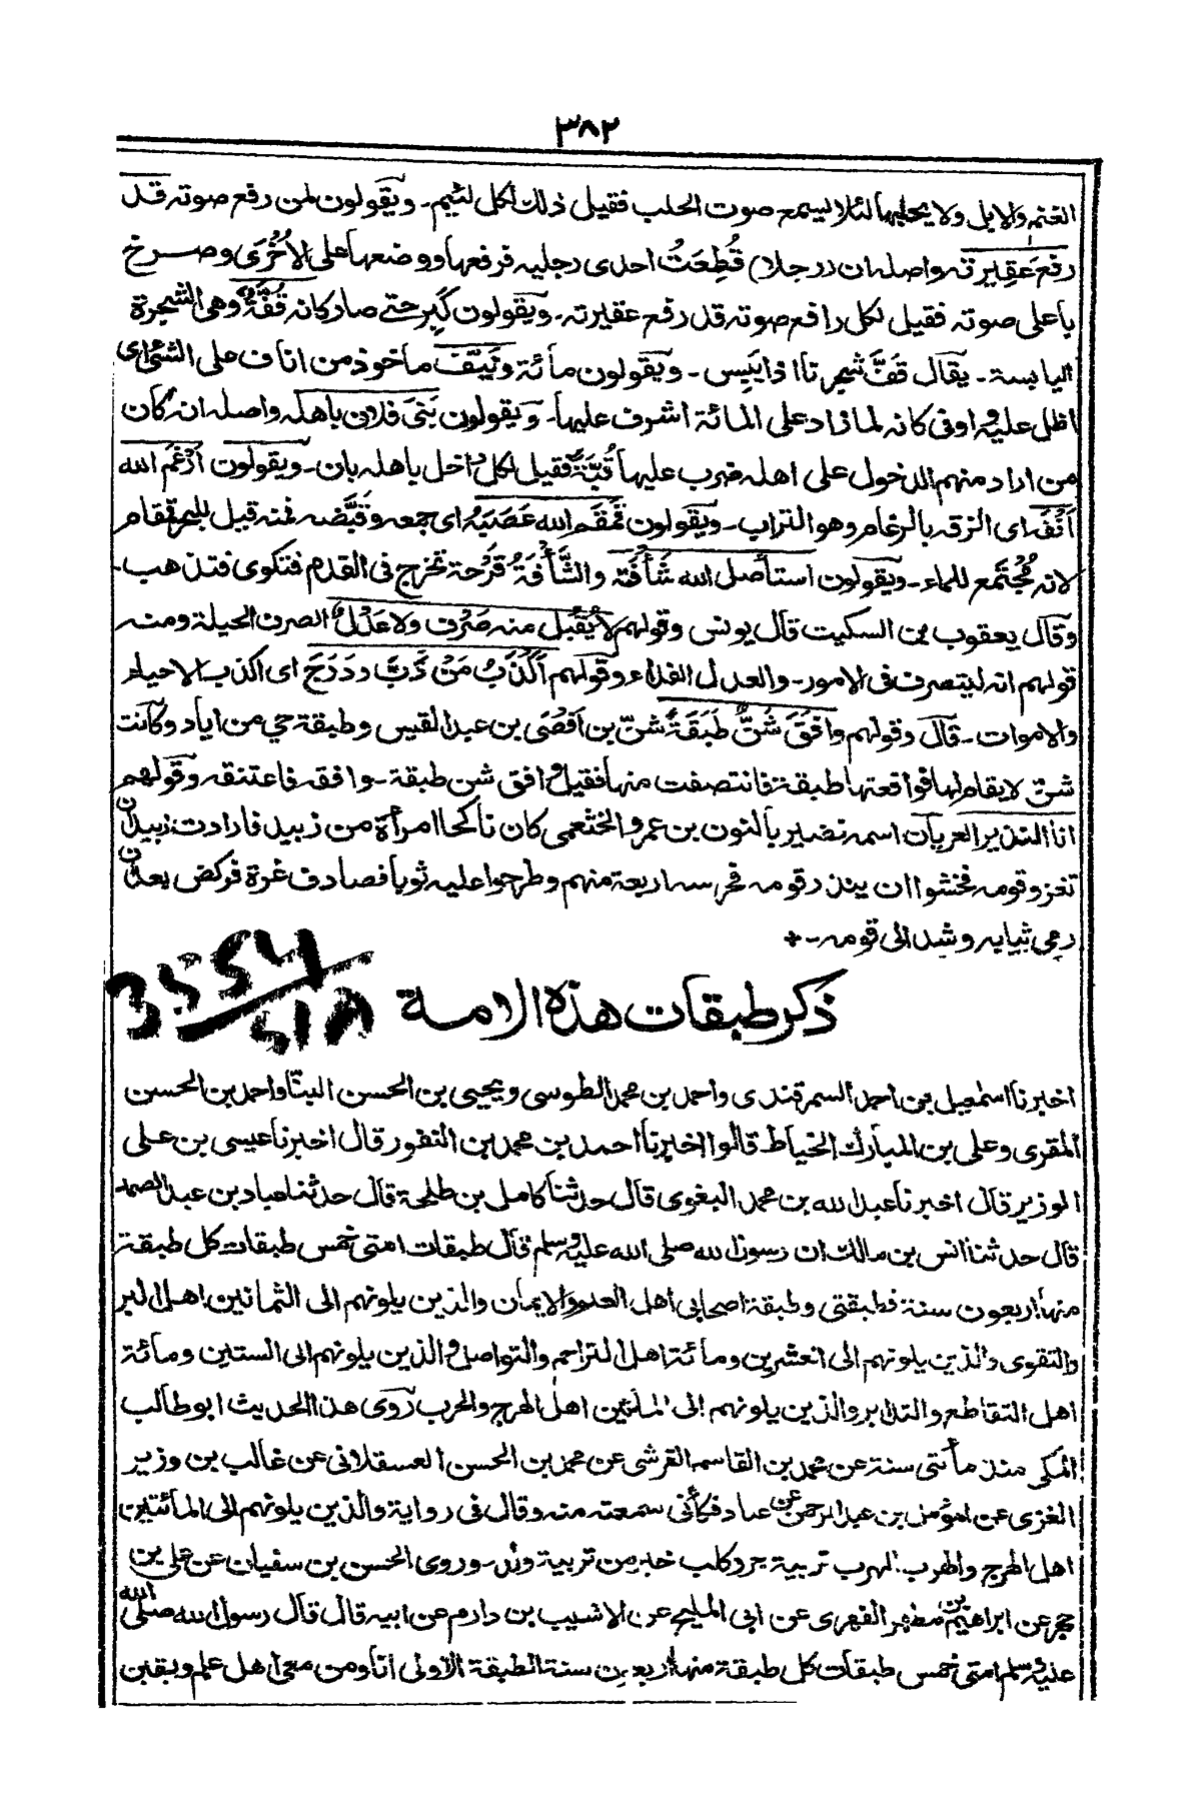 ٣٨٢
الغنم والابل ولا يحلبها لئلا يسمع صوت الحلب فقيل ذلك لكل لئيم۔ ويقولون لمن رفع صوته قد
رفع عَقِيرته واصله ان (رجلا) قُطِعَتْ احدى رجليه فرفعها ووضعها على الاُخْرَى وصرخ
باعلى صوته فقيل لكل رافع صوته قد رفع عقيرته۔ ويقولون كَبِر حتى صار كانه قُفَّةٌ وهى الشجرة
اليابسة۔ يقال قَفَّ شجرتنا اذا يَبِس۔ ويقولون مائة ونَيِّف ماخوذ من اناف على الشئ اى
اظل عليه واوفى كانه لما زاد على المائة اشرف عليها۔ ويقولون بَنَى فلان باهله واصله انه كان
من اراد منهم الدخول على اهله ضرب عليها قُبَّةً فقيل لكل داخل باهله بان۔ ويقولون اَرْغَم الله
اَنْفَه اى الزقه بالرغام وهو التراب۔ ويقولون قَمْقَم الله عَصَبَهُ اى جمعه وقَبَّضه فمنه قيل للبحر قمقام
لانه مُجْتَمع للماء۔ ويقولون استأصل الله شَأْفَتَه والشَّأْفَةُ قَرْحة تخرج فى القدم فتكوى فتذهب۔
وقال يعقوب بن السكيت قال يونس وقولهم لا يُقْبَل منه صَرْف ولا عَدْل الصرف الحيلة ومنه
قولهم انه ليتصرف فى الامور۔ والعدل الفداء وقولهم اَكْذَبُ مَنْ دَبَّ ودَرَجَ اى اكذب الاحياء
والاموات۔ قال وقولهم وافَقَ شَنٌّ طَبَقَةَ شنّ بن اَفْصَى بن عبد القيس وطبقة حى من اياد وكانت
شن لا يقام لها فواقعتها طبقة فانتصفت منها فقيل وافق شن طبقة۔ وافقه فاعتنقه وقولهم
انا النذير العريان اسمه نضير بالنون بن عمرو الخثعمى كان ناكحا امرأة من زبيد فارادت زبيد ان
تغزو قومه فخشوا ان ينذر قومه فحرسه اربعة منهم وطرحوا عليه ثوبا فصادف غرة فركض بعد ان
رمى ثيابه وشد الى قومه۔
ذكر طبقات هذه الامة
اخبرنا اسمعيل بن احمد السمرقندى واحمد بن محمد الطوسى ويحيى بن الحسن البنا واحمد بن الحسن
المقرى وعلى بن المبارك الخياط قالوا اخبرنا احمد بن محمد بن النقور قال اخبرنا عيسى بن على
الوزير قال اخبرنا عبد الله بن محمد البغوى قال حدثنا كامل بن طلحة قال حدثنا عباد بن عبد الصمد
قال حدثنا انس بن مالك ان رسول الله صلى الله عليه وسلم قال طبقات امتى خمس طبقات كل طبقة
منها اربعون سنة فطبقتى وطبقة اصحابى أهل العلم والايمان والذين يلونهم الى الثمانين اهل البر
والتقوى والذين يلونهم الى العشرين ومائة اهل التراحم والتواصل والذين يلونهم الى الستين ومائة
اهل التقاطع والتدابر والذين يلونهم الى المائتين اهل الهرج والحرب روى هذا الحديث ابو طالب
المكى منذ مأتى سنة عن محمد بن القاسم القرشى عن محمد بن الحسن العسقلانى عن غالب بن وزير
الغزى عن المؤمل بن عبد الرحمن عن عباد فكأنى سمعته منه وقال فى رواية والذين يلونهم الى المائتين
اهل الهرج والهرب الهرب تربية جرو كلب خير من تربية ولد۔ وروى الحسن بن سفيان عن على بن
حجر عن ابراهيم بن مطهر الفهرى عن ابى المليح عن الاشيب بن دارم عن ابيه قال قال رسول الله صلى الله
عليه وسلم امتى خمس طبقات كل طبقة منها اربعين سنة الطبقة الاولى انا ومن معى اهل علم ويقين